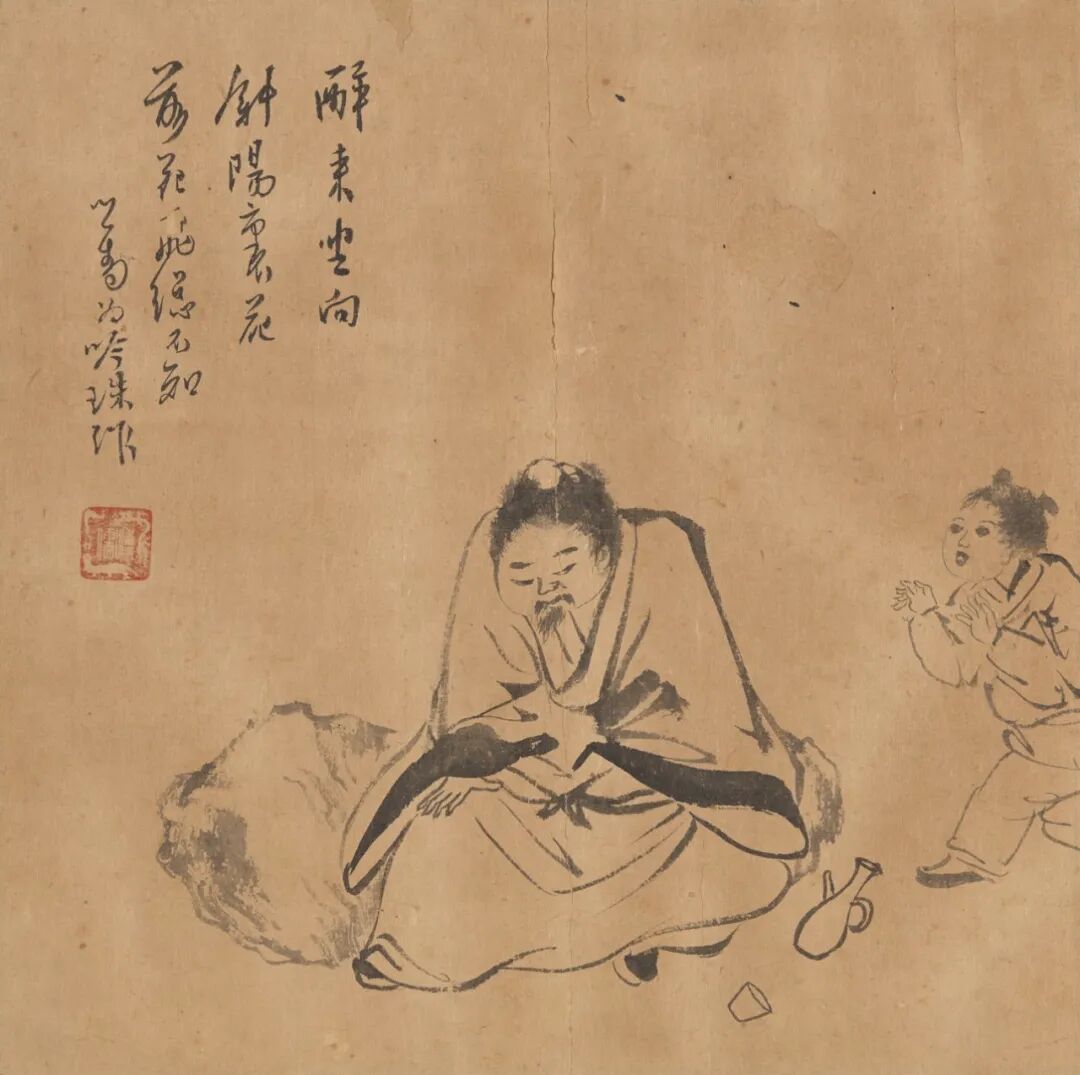 醉来坐向
斜陽裏花
落花飛總不知
心畬为吟珠作